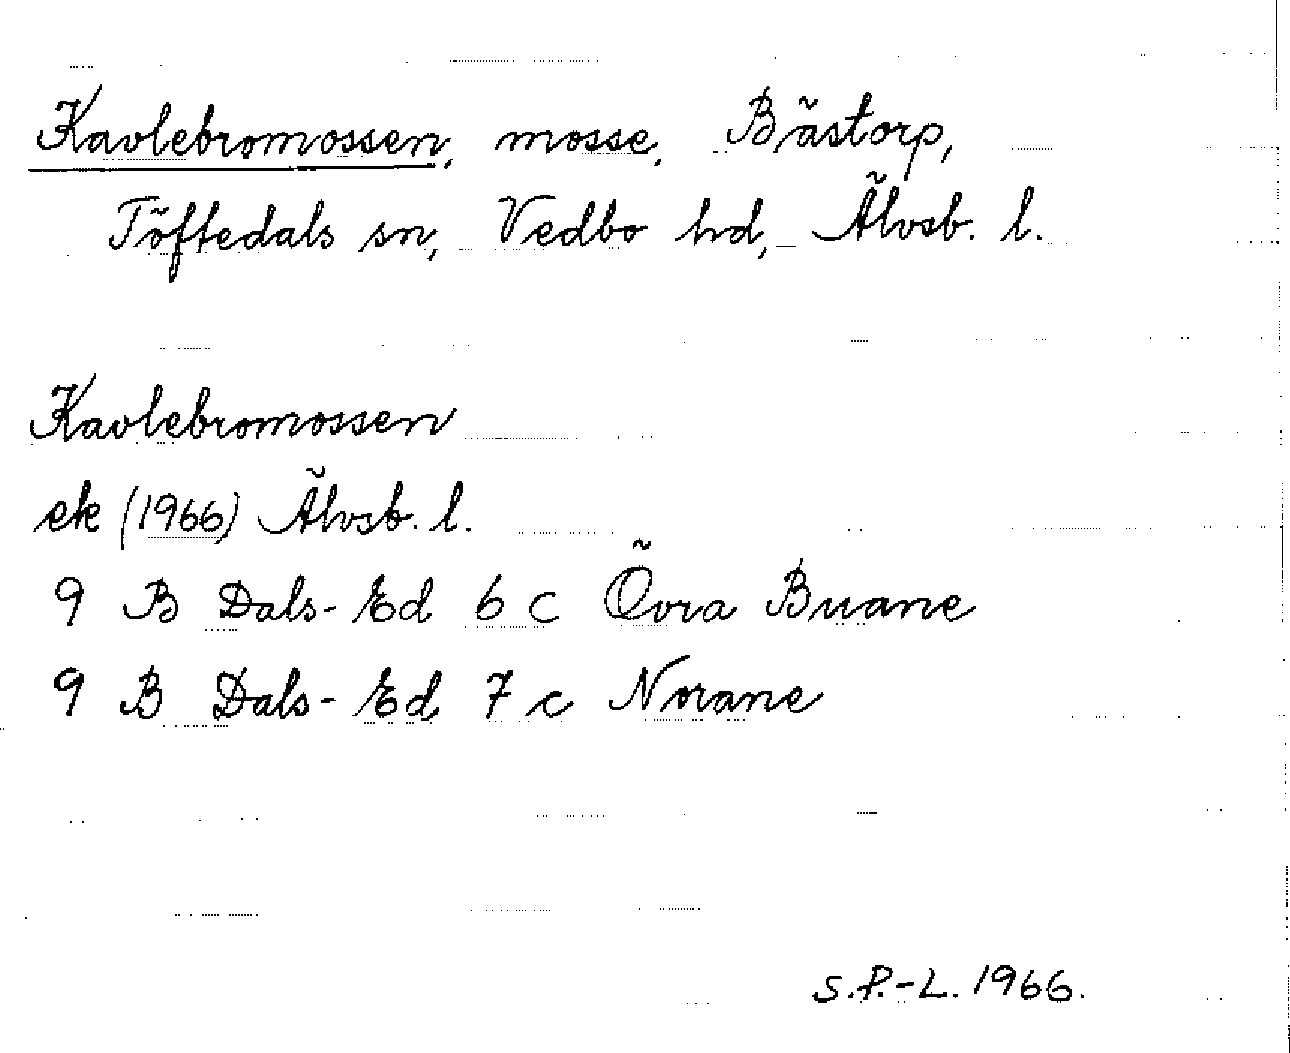 Kavlebromossen, mosse, Bästorp,
Töftedals sn, Vedbo hd, Älvsb. l.
Kavlebromossen
ek (1966) Älvsb. l.
9 B Dals-Ed 6 c Övra Buane
9 B Dals-Ed 7 c Norane
S.P.-L. 1966.